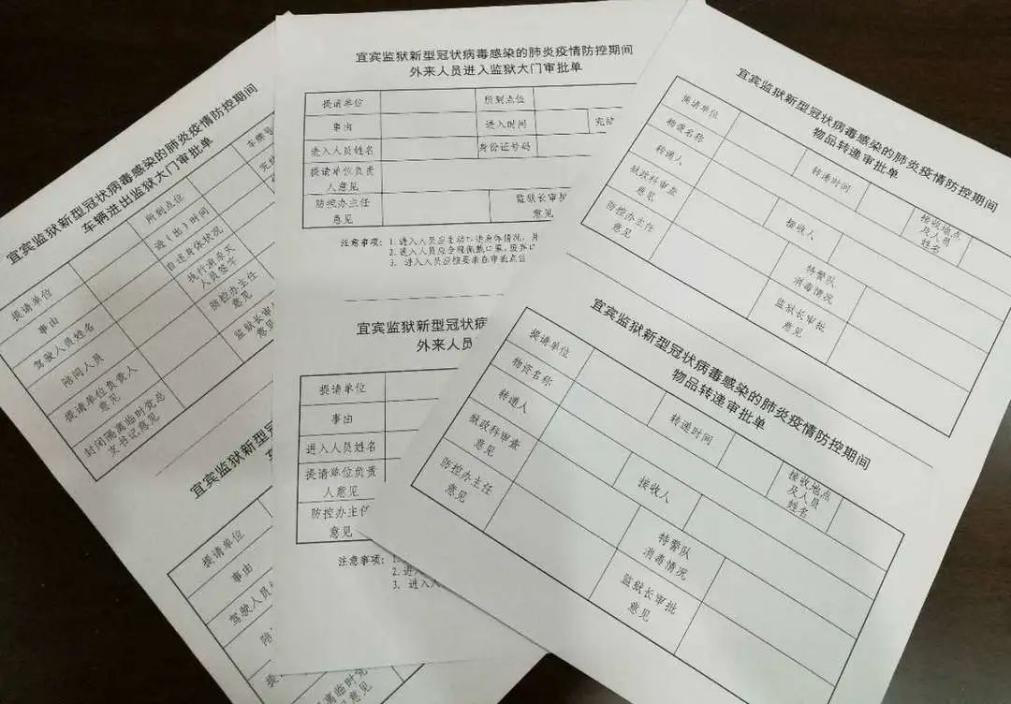 宜宾监狱新型冠状病毒感染的肺炎疫情防控期间
车辆进出监狱大门审批单
提请单位
所到点位
车牌号
事由
进（出）时间
驾驶人员姓名
自述身体状况
陪同人员
人员签字
提请单位负责人
意见
防控办主任
意见
封闭隔离临时党总
支书记意见
监狱长审
意见
宜宾监狱新型
提请单位
事由
驾驶人员
陪
提
离临时党
意见
宜宾监狱新型冠状病毒感染的肺炎疫情防控期间
外来人员进入监狱大门审批单
提请单位
所到点位
事由
进入时间
进入人员姓名
身份证号码
提请单位负责
人意见
防控办主任
意见
监狱长审
意见
注意事项：1. 进入人员应主动
2. 进入人员应全程佩戴口罩、
3. 进入人员应按要求在审批点位
宜宾监狱新型冠状病
外来人员
提请单位
事由
进入人员姓名
提请单位负责
人意见
防控办主任
意见
注意事项：1.
2. 进
3. 进入人
宜宾监狱新型冠状病毒感染的肺炎疫情防控期间
物品转递审批单
提请单位
物资名称
转递时间
转递人
接收人
接收地点
及人员
姓名
狱政科审查
意见
特警队
消毒情况
防控办主任
意见
监狱长审批
意见
宜宾监狱新型冠状病毒感染的肺炎疫情防控期间
物品转递审批单
提请单位
物资名称
转递时间
转递人
接收人
接收地点
及人员
姓名
狱政科审查
意见
特警队
消毒情况
防控办主任
意见
监狱长审批
意见